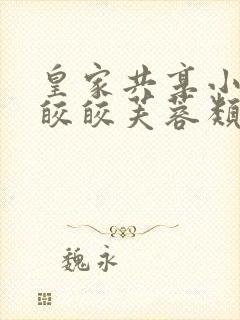 皇家共享小
皎皎芙蓉类
魏永